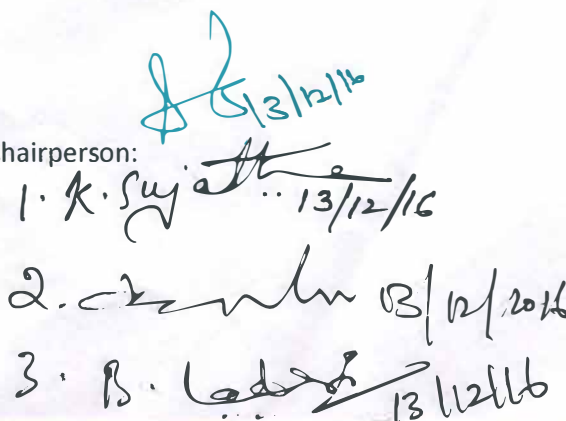 13/12/16
hairperson:
1. K. Sujatha 13/12/16
2. 13/12/2016
3. B. 13/12/16